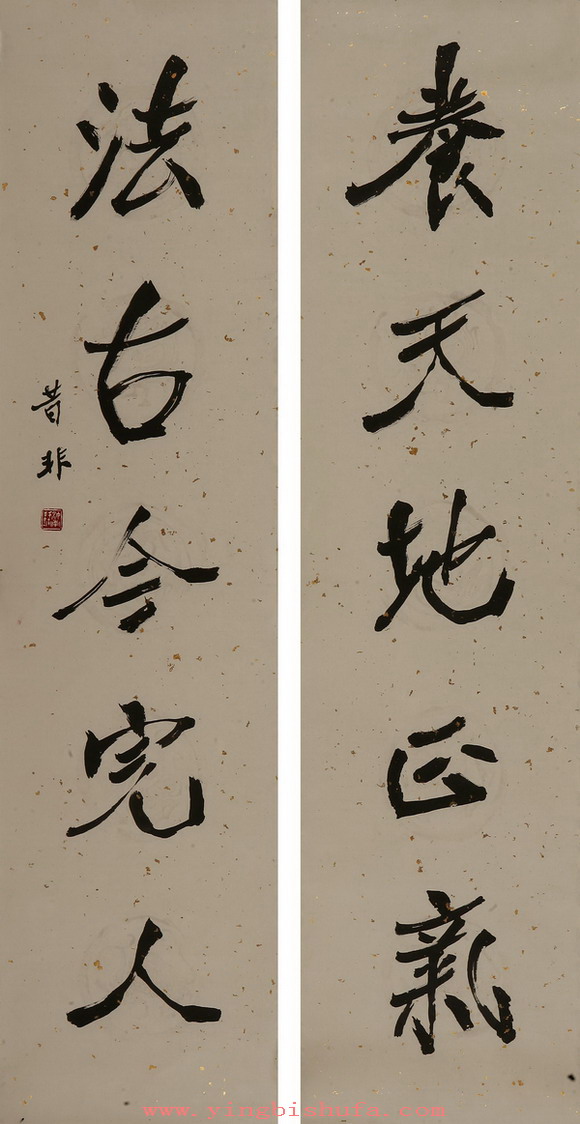 養天地正氣
法古今完人
昔非
www.yingbishufa.com